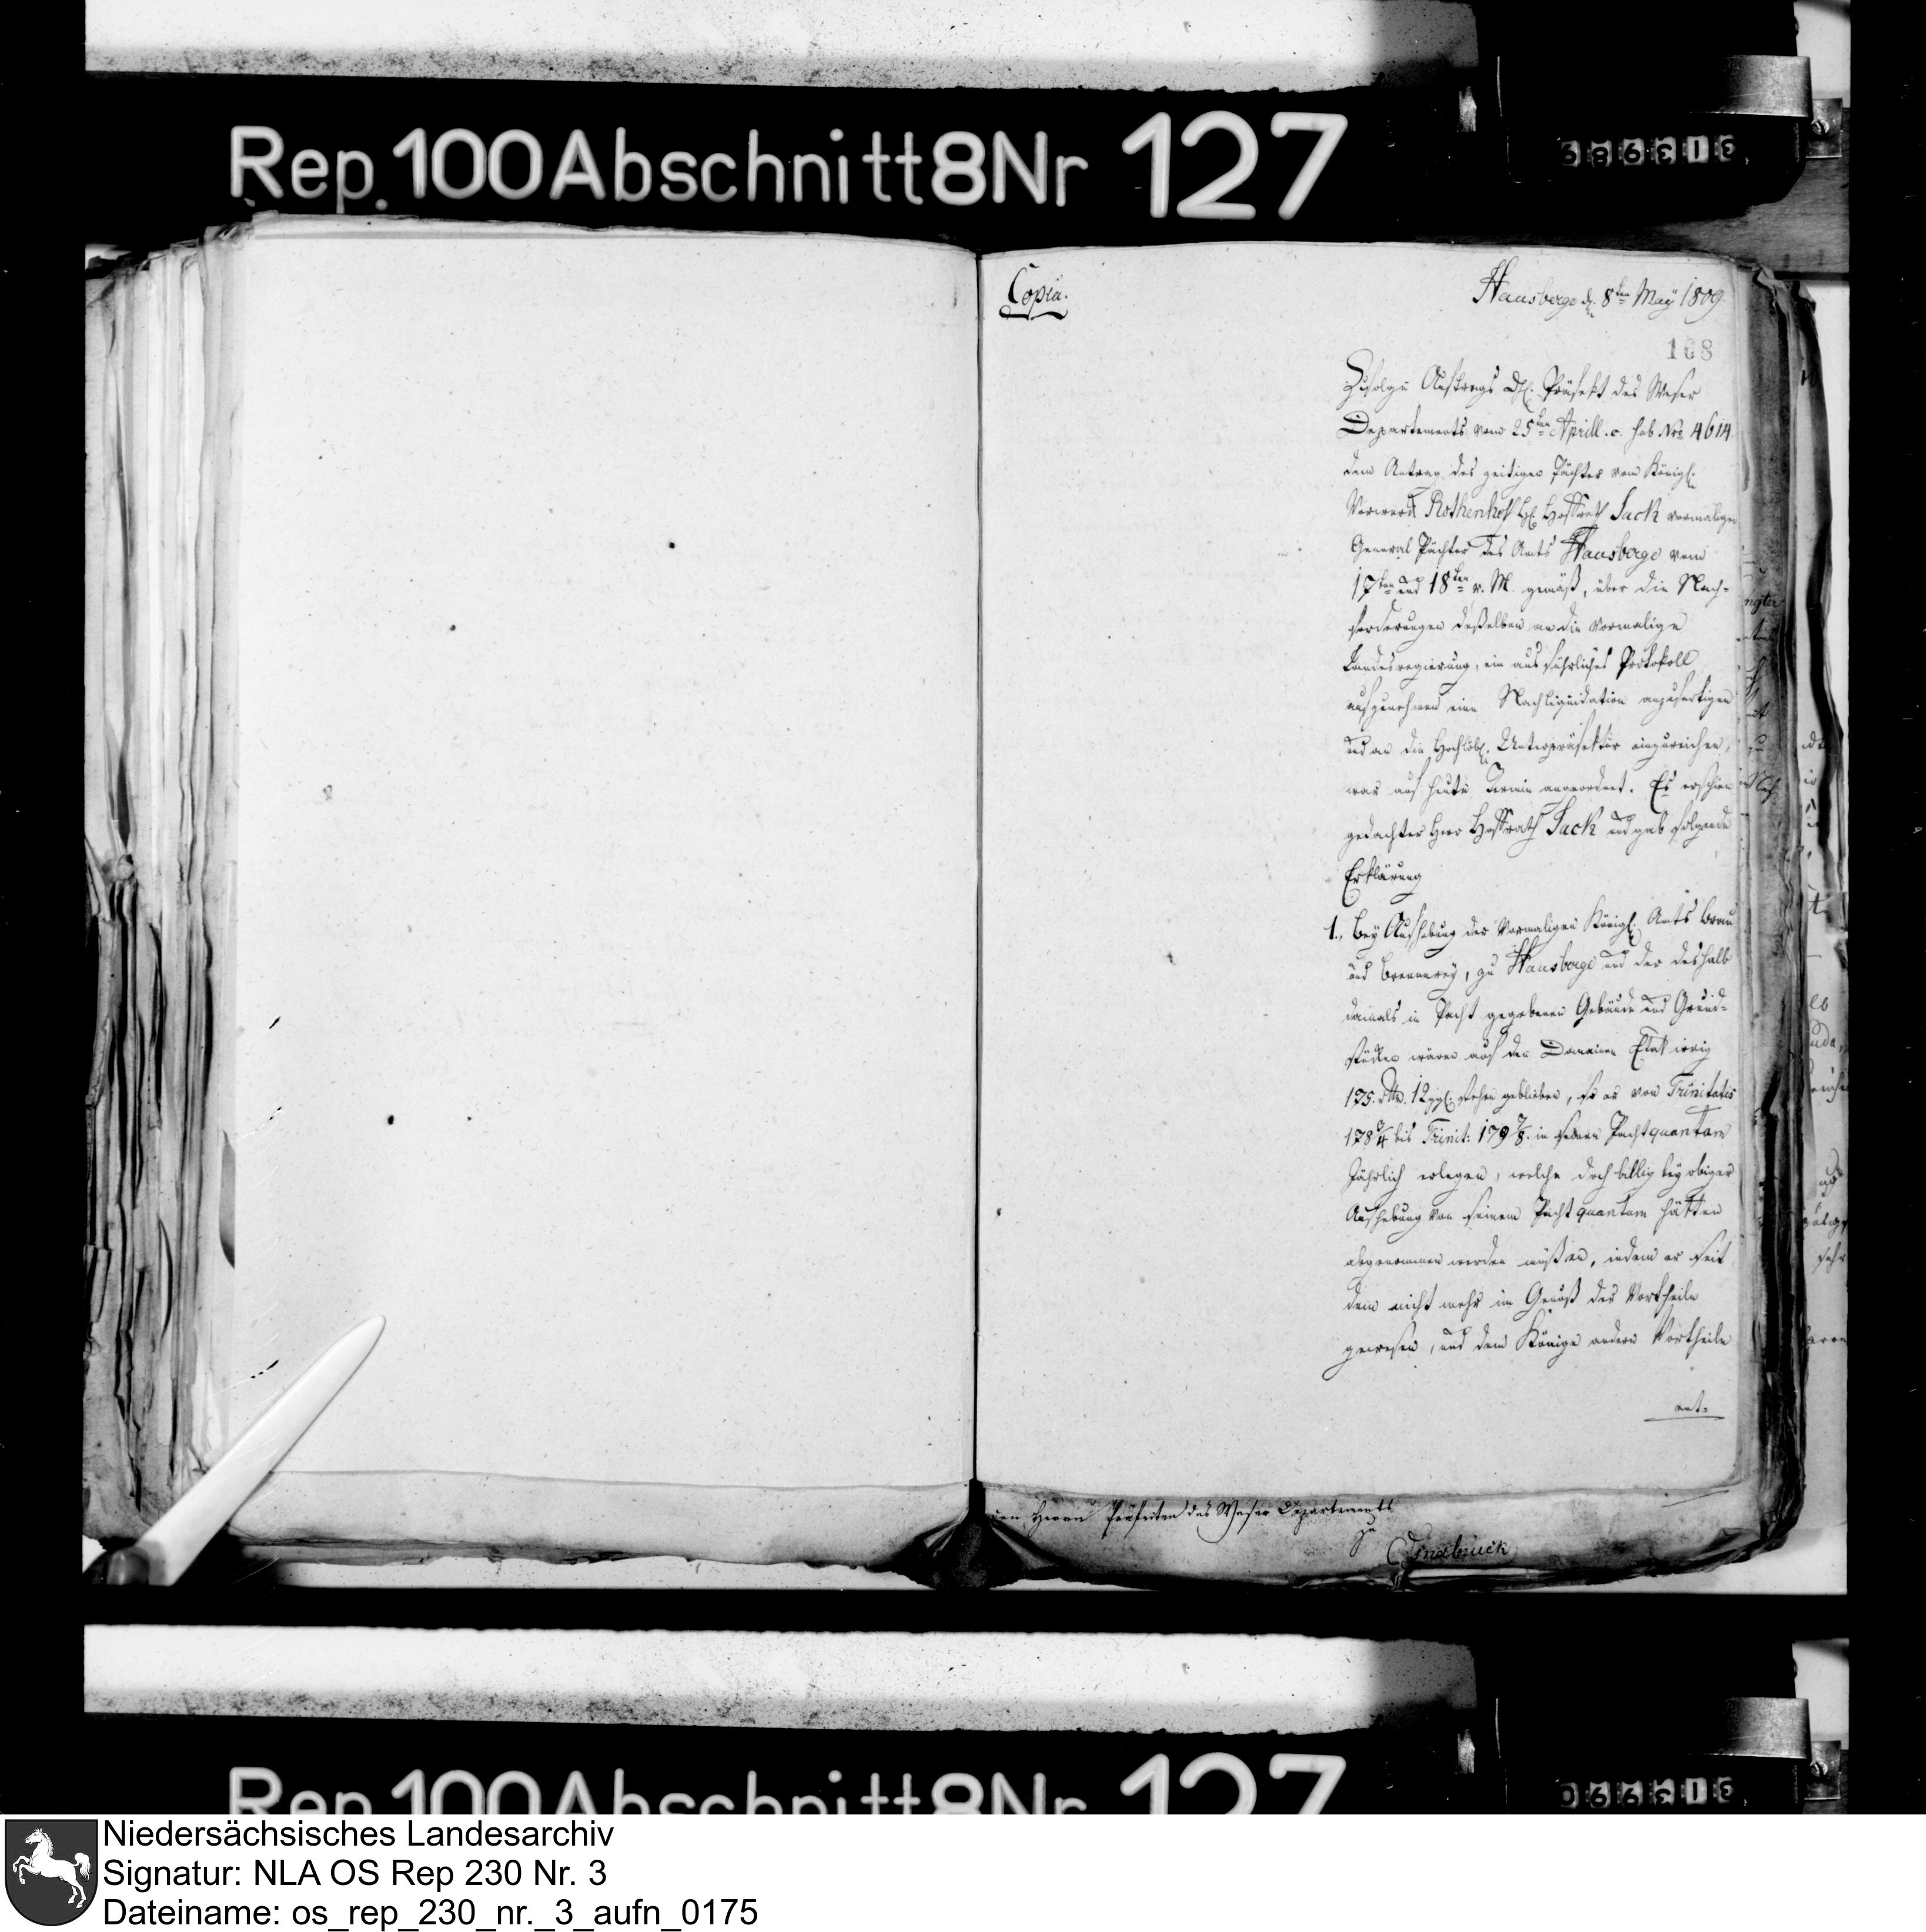 Rep. 100 Abschnitt 8 Nr 127
Copia.
Hausberge d. 8ten May 1809.
168
Zufolge Auftrags Hl. Präfekt des Weser
Departements vom 25ten Aprill. c. sub Nro 4614
dem Antrag des zeitigen Pächters vom Königl.
Vorwerk Rothenhof Hl. Hoffrath Sack vormaligen
General Pächter des Amts Hausberge vom
17ten und 18ten v. M. gemäß, über die Nach-
forderungen deßelben an die vormalige
Landesregierung, ein ausführliches Protokoll
aufzunehmen eine Nachliquidation anzufertigen
und an die Hochlöbl. Unterpräfektur einzureichen,
war auf heute Termin angeordnet. Es erschien
gedachter Herr Hoffrath Sack und gab folgende
Erklärung
1., Bey Aufhebung der vormaligen Königl. Amts Brau
und Brennerey, zu Hausberge und der deshalb
damals in Pacht gegebenen Gebäude und Grund-
stücken wären auf den Domainen Etat irrig
175. rthl. 12 ggl. stehen geblieben, so er von Trinitatis
178¾ bis Trinit: 179⅞. in seinem Pachtquantum
Jährlich erlegen, welche doch billig bey obiger
Aufhebung von seinem Pachtquantum hätten
abgenommen werden müßen, indem er seit
dem nicht mehr im Genuß der Vortheile
gewesen, und dem Könige andere Vortheile
ent-
den Herrn Präfekten des Weser Departements
zu
Osnabrück
Rep. 100 Abschnitt 8 Nr 127
Niedersächsisches Landesarchiv
Signatur: NLA OS Rep 230 Nr. 3
Dateiname: os_rep_230_nr._3_aufn_0175